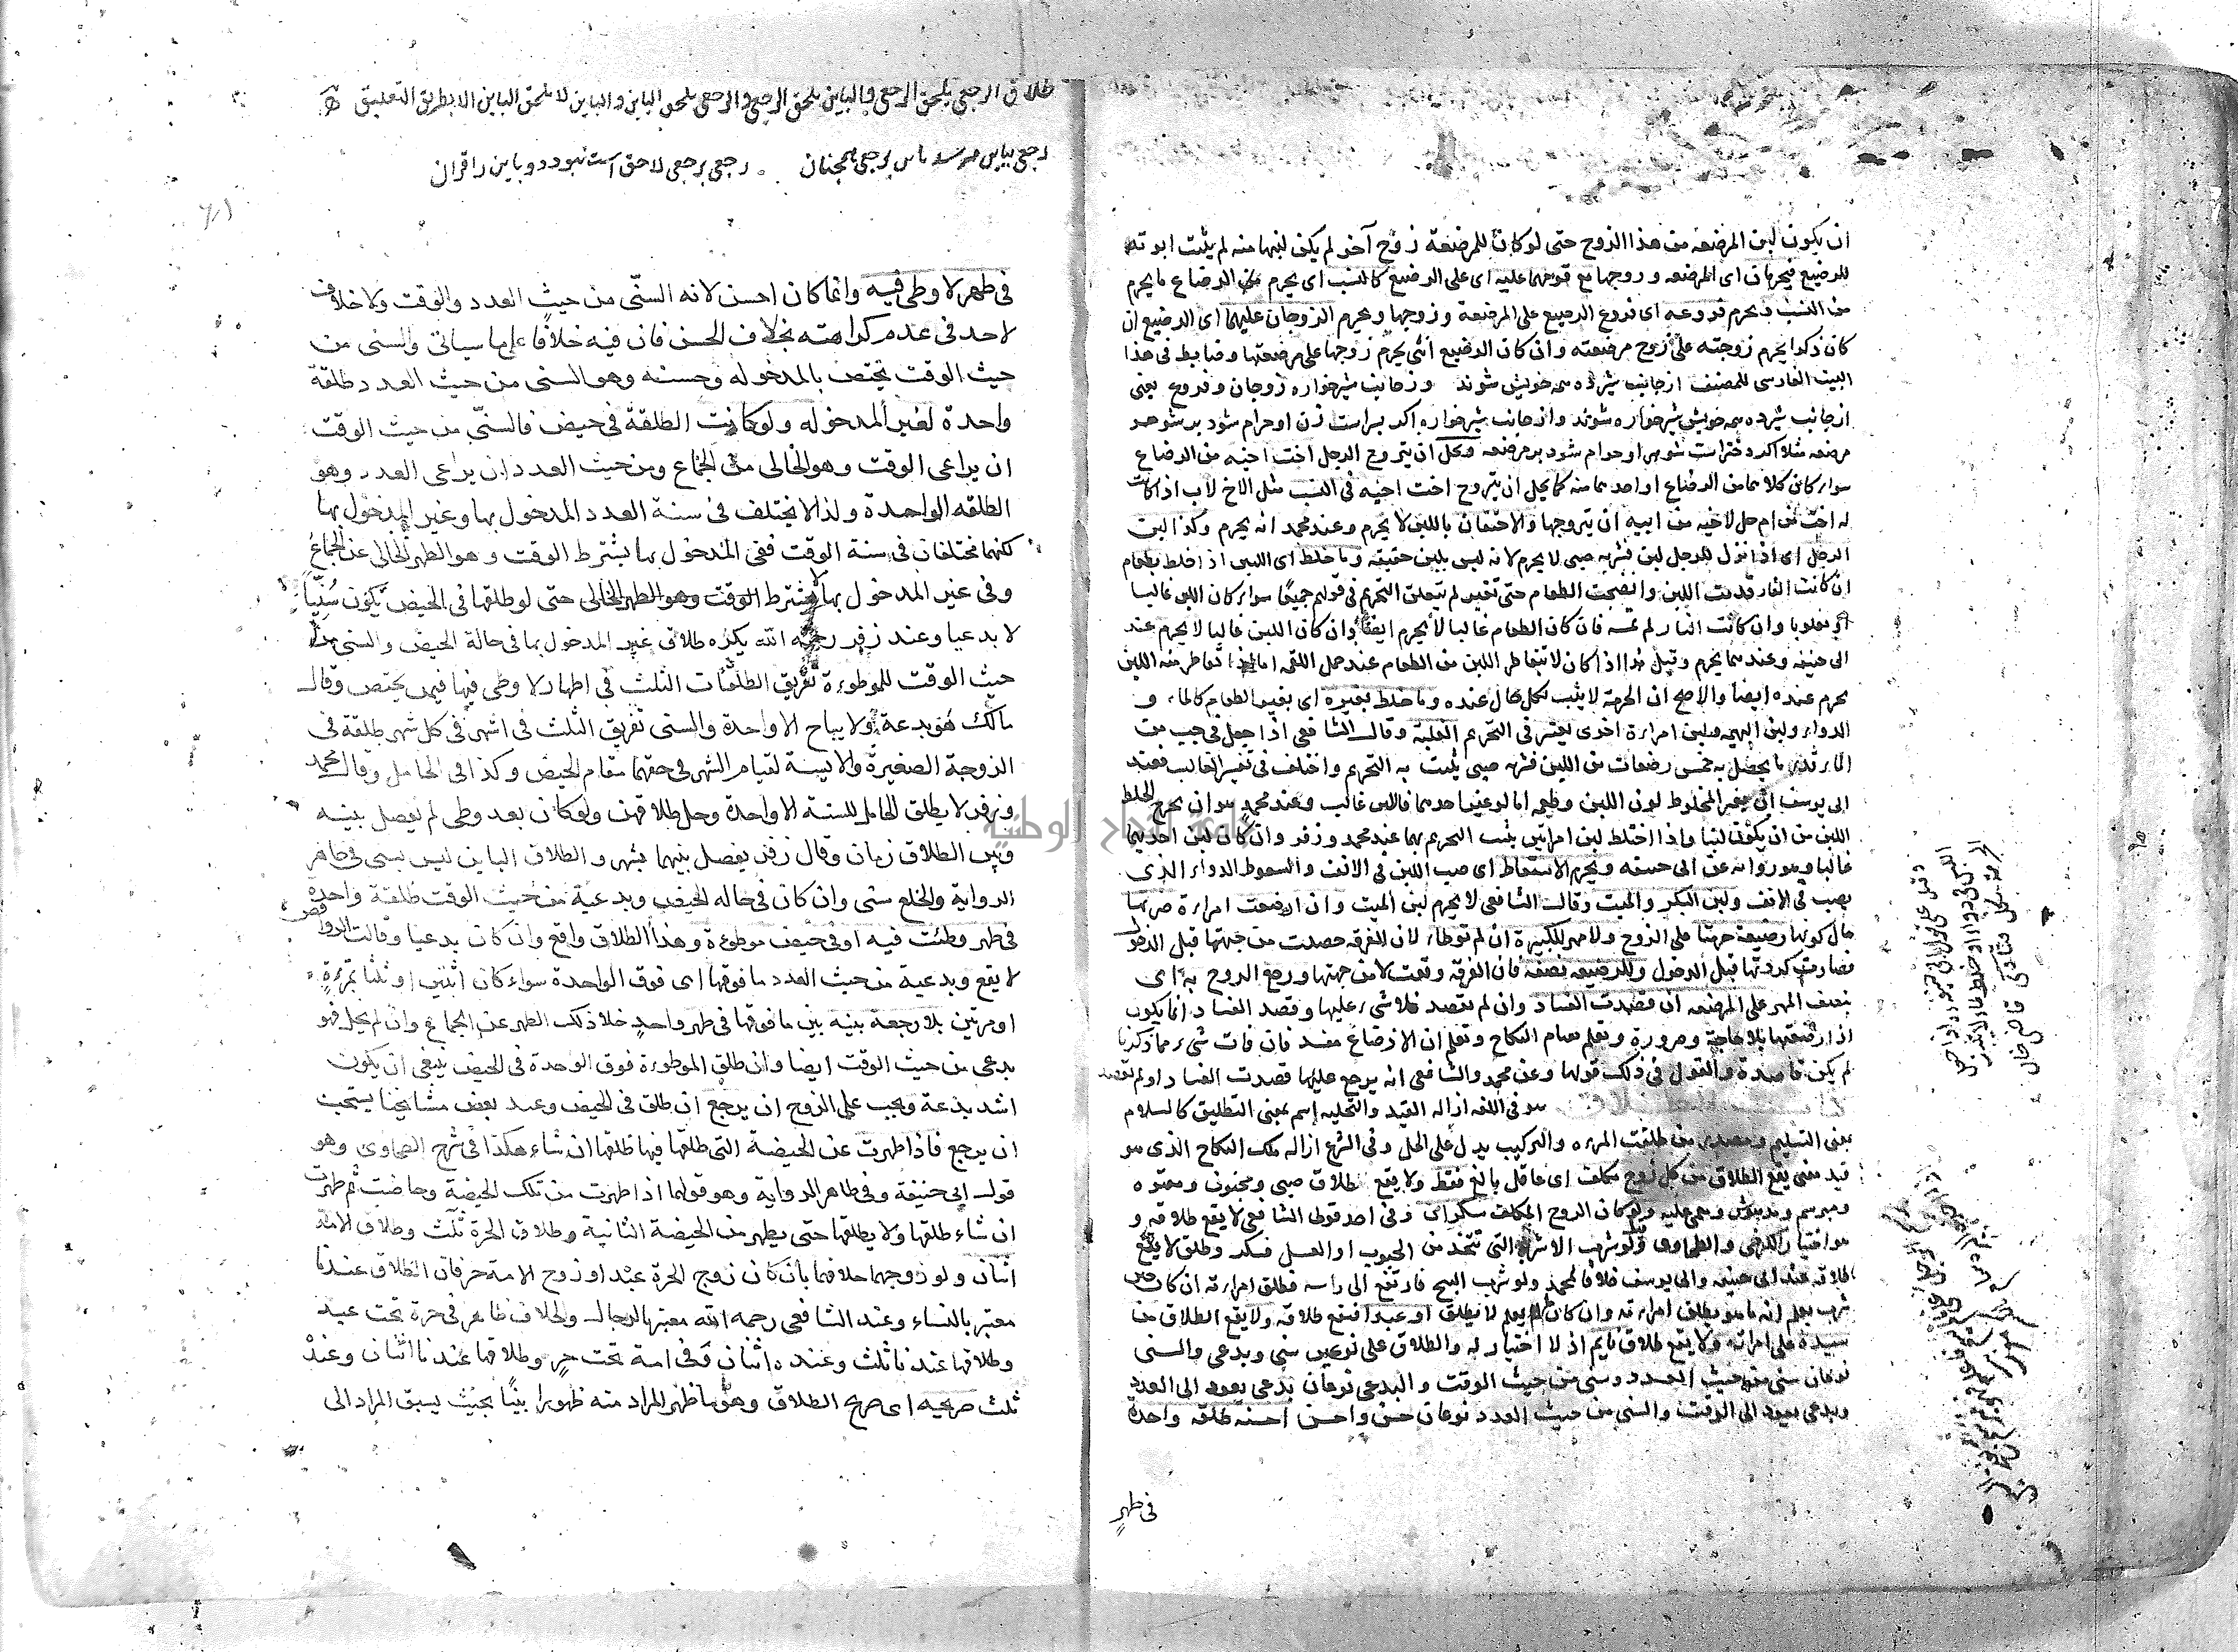 ان يكون لبن المرضعة من هذا الزوج حتى لو كان للمرضعة زوج آخر لم يكن لبنها منه لم يثبت ابوته
للرضيع فيحرمان اى المرضعه وزوجها مع قومهما عليه اى على الرضيع كالنسب اى يحرم من الرضاع ما يحرم
من النسب ويحرم فروعه اى فروع الرضيع على المرضعة وزوجها ويحرم الزوجان عليهما اى الرضيع ان
كان ذكرا يحرم زوجته على زوج مرضعته وان كان الرضيع انثى يحرم زوجها على مرضعتها وضابط فى هذا
البيت الفارسى للمصنف از جانب شيرده همه خويش شوند وز جانب شيرخواره زوجان وفروع يعنى
از جانب شيرده همه خويش شيرخواره شوند واز جانب شيرخواره اكر پسر است زن او حرام شود بر شوهر
مرضعه مثلا اكر دختر است شوهر او حرام شود بر مرضعه ويحل ان يتزوج الرجل اخت اخيه من الرضاع
سواء كان كلاهما من الرضاع او احدهما منه كما يحل ان يتزوج اخت اخيه فى النسب مثل الاخ لاب اذا كانت
له اخت من ام حل لاخيه من ابيه ان يتزوجها والاحتقان باللبن لا يحرم وعند محمد انه يحرم وكذا لبن
الرجل اى اذا نزل للرجل لبن فشربه صبى لا يحرم لانه ليس بلبن حقيقة وما خلط اى اللبن اذا خلط بطعام
ان كانت النار قد مست اللبن وانضجت الطعام حتى تغير لم يتعلق التحريم فى قولهم جميعًا سواء كان اللبن غالبا
او مغلوبا وان كانت النار لم تمسه فان كان الطعام غالبا لا يحرم ايضًا وان كان اللبن غالبا لا يحرم عند
ابى حنيفه وعندهما يحرم وقيل هذا اذا كان لا يتقاطر اللبن من الطعام عند حمل اللقمة اما اذا تقاطر منه اللبن
يحرم عنده ايضا والاصح ان الحرمة لا يثبت بكل حال عنده وما خلط بغيره اى بغير الطعام كالماء و
الدواء ولبن البهيمه ولبن امراءة اخرى يعتبر فى التحريم الغلبة وقال الشافعى اذا جعل فى جب من
الماء قدر ما يحصل به خمس رضعات من اللبن فشربه صبى يثبت به التحريم واختلف فى تفسير الغالب فعند
ابى يوسف ان يغير المخلوط لون اللبن وطعمه اما لو غير احدهما فاللبن غالب وعند محمد هو ان يخرج الخلط
اللبن من ان يكون لبنا واذا اختلط لبن امراتين يثبت التحريم بهما عند محمد وزفر وان كان لبن احديهما
غالبا وهو رواية عن ابى حنيفه ويحرم الاستعاط اى صب اللبن فى الانف والسعوط الدواء الذى
يصب فى الانف ولبن البكر والميت وقال الشافعى لا يحرم لبن الميت وان ارضعت امراءة ضرتها
حال كونها رضيعة حرمتا على الزوج ولا مهر للكبيرة ان لم توطا لان الفرقة حصلت من جهتها قبل الدخول
فصارت كردتها قبل الدخول وللرضيعه نصفه فان الفرقة وقعت لا من جهتها ورجع الزوج به اى
بنصف المهر على المرضعه ان قصدت الفساد وان لم تقصد فلا شىء عليها وقصد الفساد انما يكون
اذا ارضعتها بلا حاجة وضرورة وتعلم بقيام النكاح وتعلم ان الارضاع مفسد فان فات شىء مما ذكرنا
لم يكن قاصدة والقول فى ذلك قولها وعن محمد والشافعى انه يرجع عليها قصدت الفساد او لم تقصد
هو فى اللغه ازاله القيد والتخليه اسم بمعنى التطليق كالسلام
بمعنى التسليم ومصدر من طلقت المراه والتركيب يدل على الحل وفى الشرع ازاله ملك النكاح الذى هو
قيد معنى يقع الطلاق من كل زوج مكلف اى عاقل بالغ فقط ولا يقع طلاق صبى ومجنون ومعتوه
ومبرسم ومدهوش ومغمى عليه ولو كان الزوج المكلف سكران وفى احد قولى الشافعى لا يقع طلاقه و
هو اختيار الكرخى والطحاوى ولو شرب الاشربة التى تتخذ من الحبوب او العسل فسكر وطلق لا يقع
طلاقه عند ابى حنيفه وابى يوسف خلافا لمحمد ولو شرب البنج فارتفع الى راسه فطلق امراءته ان كان حين
شرب يعلم انه ما هو يطلق امراءته وان كان لم يعلم لا يطلق او عبدا فيقع طلاقه ولا يقع الطلاق من
سيده على امراته ولا يقع طلاق نايم اذ لا اختيار له والطلاق على نوعين سنى وبدعى والسنى
نوعان سنى من حيث العدد وسنى من حيث الوقت والبدعى نوعان بدعى يعود الى العدد
وبدعى يعود الى الوقت والسنى من حيث العدد نوعان حسن واحسن احسنه طلقه واحدة
فى طهر
طلاق الرجعى يلحق الرجعى والباين يلحق الرجعى والرجعى يلحق الباين والباين لا يلحق الباين الا بطريق التعليق
رجعى بباين مىرسد باين برجعى همچنان رجعى برجعى لاحق است نبود دو باين را قران
فى طهر لا وطى فيه وانما كان احسن لانه السنّى من حيث العدد والوقت ولا خلاف
لاحد فى عدم كراهته بخلاف الحسن فان فيه خلافًا على ما سياتى والسنى من
حيث الوقت يختص بالمدخوله وحسنه وهو السنى من حيث العدد طلقة
واحدة لغير المدخوله ولو كانت الطلقة فى حيض فالسنّى من حيث الوقت
ان يراعى الوقت وهو الخالى من الجماع ومن حيث العدد ان يراعى العدد وهو
الطلقه الواحدة ولذا لا يختلف فى سنة العدد المدخول بها وغير المدخول بها
لكنهما مختلفان فى سنة الوقت ففى المدخول بها يشترط الوقت وهو الطهر الخالى عن الجماع
وفى غير المدخول بها لا يشترط الوقت وهو الطهر الخالى حتى لو طلقها فى الحيض يكون سُنيّا
لا بدعيا وعند زفر رحمه الله يكره طلاق غير المدخول بها فى حالة الحيض والسنى من
حيث الوقت للموطوءة تفريق الطلقات الثلث فى اطهار لا وطى فيها فيمن يختص وقال
مالك هو بدعة ولا يباح الا واحدة والسنى تفريق الثلث فى اشهر فى كل شهر طلقة فى
الزوجة الصغيرة والايسة لقيام الشهر فى حقهما مقام الحيض وكذا فى الحامل وقال محمد
وزفر لا يطلق الحامل للسنة الا واحدة وحل طلاقهن ولو كان بعد وطى لم يفصل بينه
وبين الطلاق زمان وقال زفر يفصل بينهما بشهر والطلاق الباين ليس بسنى فى ظاهر
الرواية والخلع سنى وان كان فى حاله الحيض وبدعية من حيث الوقت طلقة واحدة
فى طهر وطئت فيه او فى حيض موطوءة وهذا الطلاق واقع وان كان بدعيا وقالت الروافض
لا يقع وبدعية من حيث العدد ما فوقها اى فوق الواحدة سواء كان اثنين او ثلثا بمرة
او مرتين بلا رجعة بينه بين ما فوقها فى طهر واحد خلا ذلك الطهر عن الجماع وان لم يخل فهو
بدعى من حيث الوقت ايضا وان طلق الموطوءة فوق الوحدة فى الحيض ينبغى ان يكون
اشد بدعة ويجب على الزوج ان يرجع ان طلق فى الحيض وعند بعض مشايخنا يستحب
ان يرجع فاذا طهرت عن الحيضة التى طلقها فيها طلقها ان شاء هكذا فى شرح الطحاوى وهو
قول ابى حنيفة وفى ظاهر الرواية وهو قولهما اذا طهرت من تلك الحيضة وحاضت ثم طهرت
ان شاء طلقها ولا يطلقها حتى يطهر من الحيضة الثانية وطلاق الحرة ثلث وطلاق الامة
اثنان ولو زوجهما خلافهما بان كان زوج الحرة عبدا وزوج الامة حر فان الطلاق عندنا
معتبر بالنساء وعند الشافعى رحمه الله معتبر بالرجال والخلاف ظاهر فى حرة تحت عبد
وطلاقها عندنا ثلث وعنده اثنان وفى امة تحت حر وطلاقها عندنا اثنان وعنده
ثلث صريحه اى صريح الطلاق وهو ما ظهر المراد منه ظهورا بينًا بحيث يسبق المراد الى